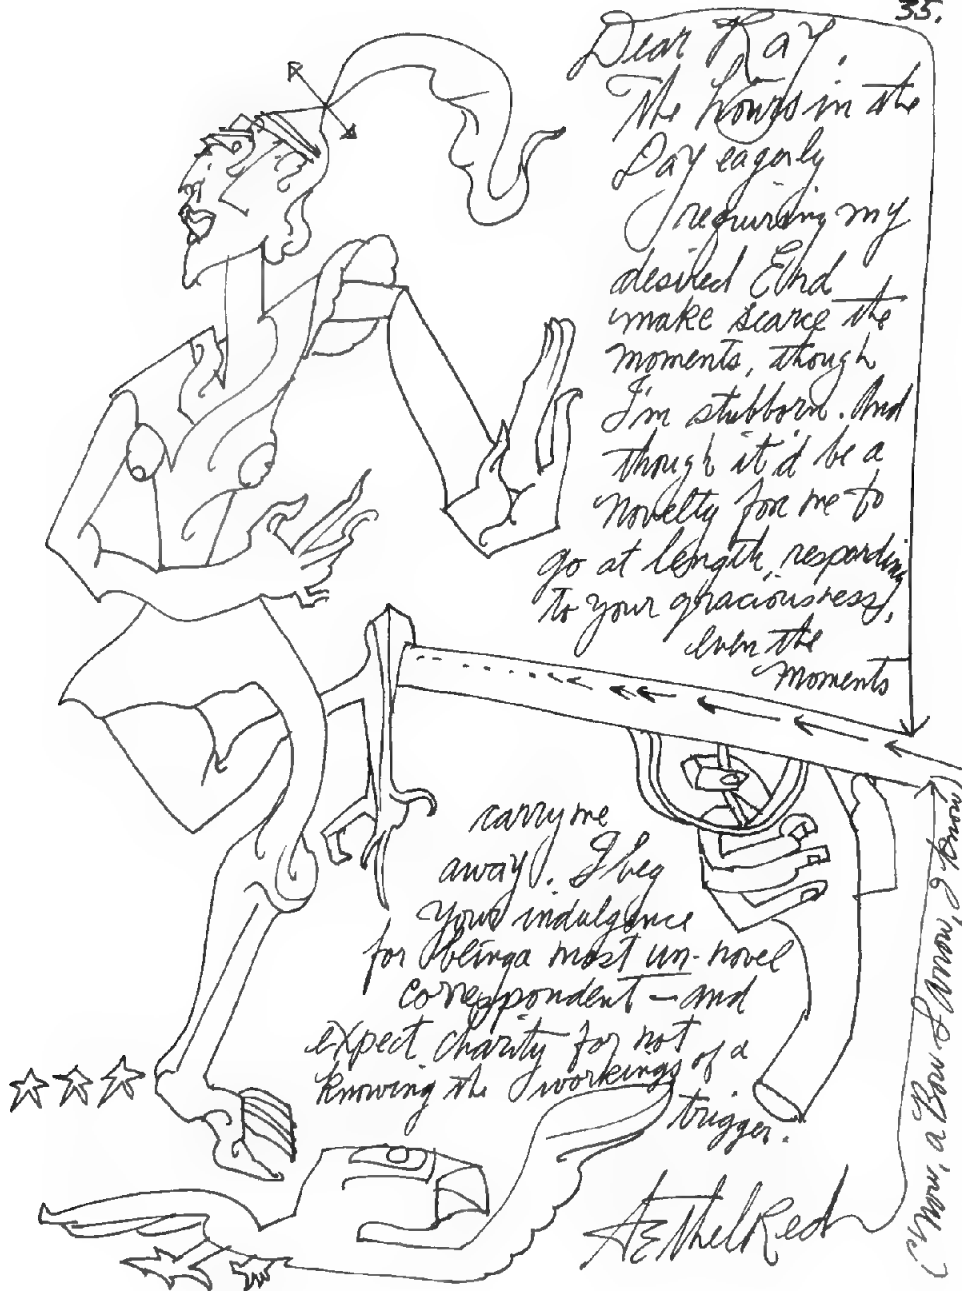 35.
Dear Ray,
The hours in the
Day eagerly
requiring my
desired End
make scarce the
moments, though
I'm stubborn. And
though it'd be a
novelty for me to
go at length, responding
to your graciousness,
even the
moments
carry me
away. I beg
your indulgence
for being a most un-novel
correspondent — and
expect charity for not
knowing the workings of a
trigger.
AEthelRed
(Now, a Bow & Arrow, I know)